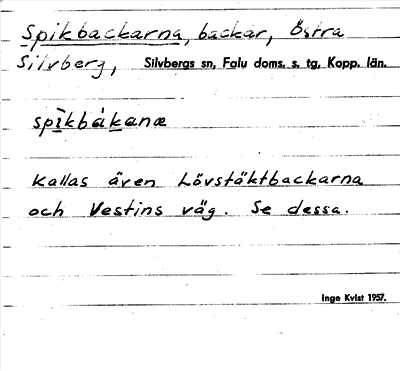 Spikbackarna, backar, Östra
Silvberg, Silvbergs sn, Falu doms. s. tg, Kopp. län.
spìkbákanæ
Kallas även Lövstäktbackarna
och Vestins väg. Se dessa.
Inge Kvist 1957.